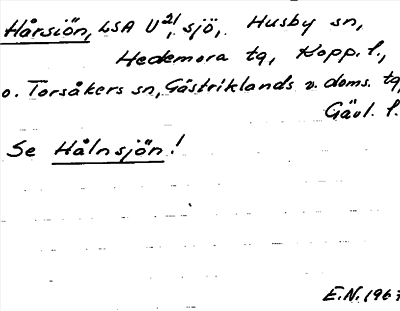 Hårsiön, LSA U21, sjö, Husby sn,
Hedemora tg, Kopp. l.,
o. Torsåkers sn, Gästriklands v. doms. tg,
Gävl. l.
Se Hålnsjön!
E.N. 1967